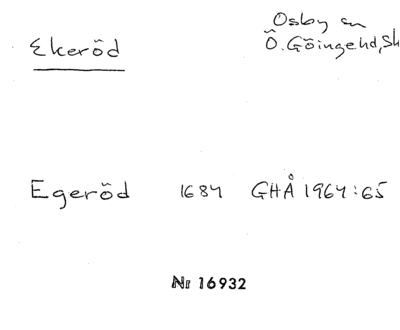 Ekeröd
Osby sn
Ö. Göinge hd, Sk
Egeröd 1684 GHÅ 1964:65
Nr 16932